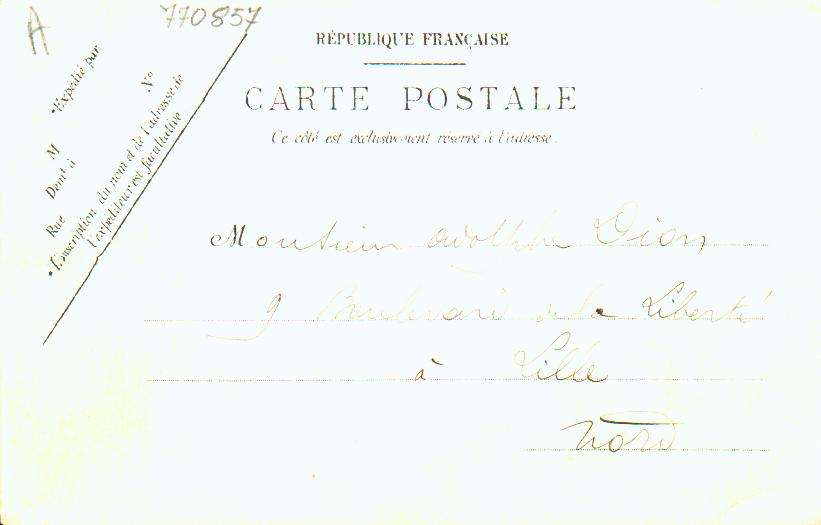 A
770857
RÉPUBLIQUE FRANÇAISE
CARTE POSTALE
Ce côté est exclusivement réservé à l'adresse.
Expédié par
M
Demt à
Rue
No
L'inscription du nom et de l'adresse de
l'expéditeur est facultative
Monsieur Adolphe Dion
9 Boulevard de la Liberté
à Lille
Nord